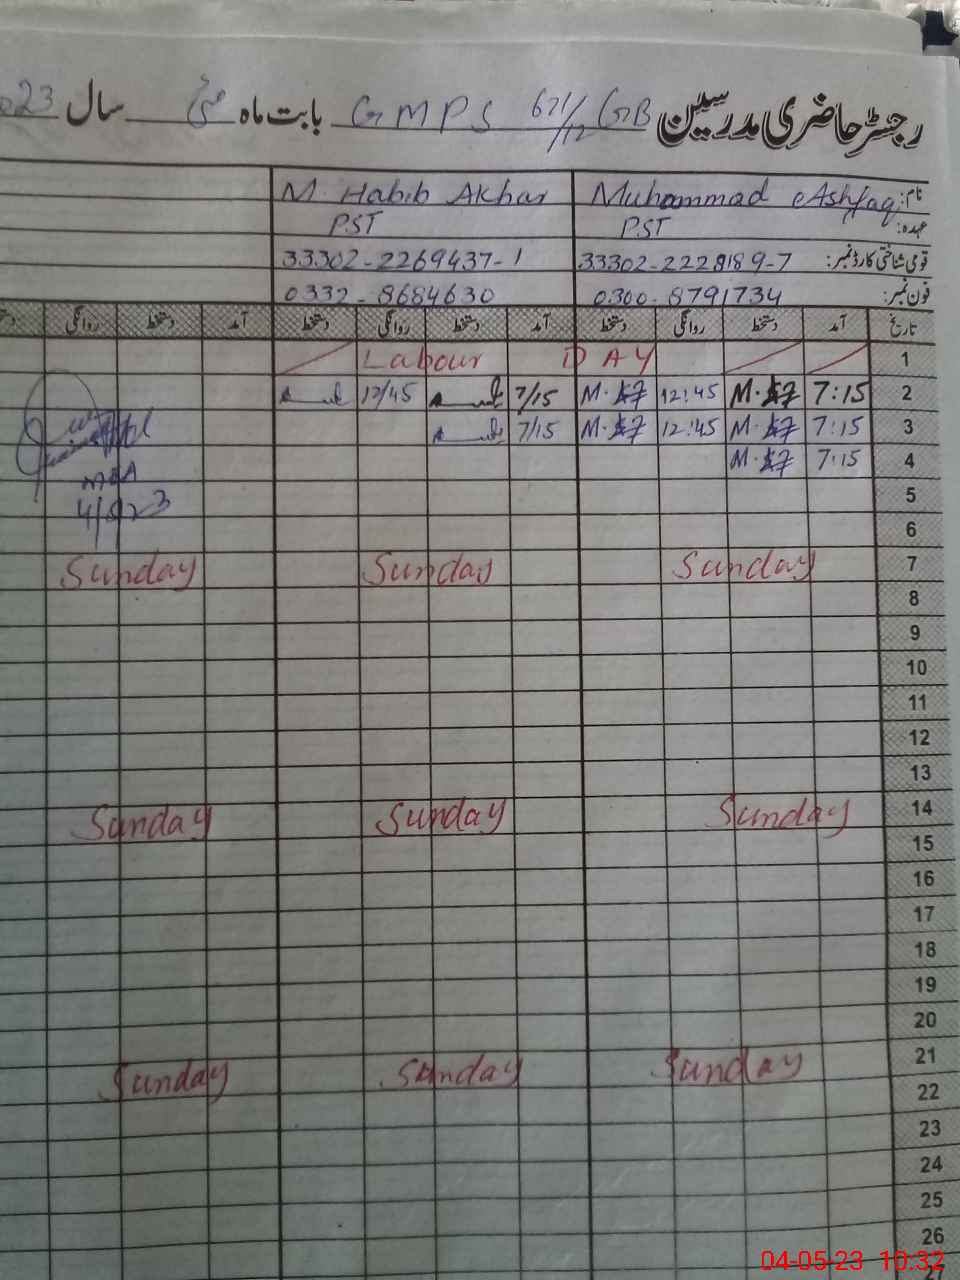 رجسٹر حاضری مدرسین GMPS 671/12 GB بابت ماہ مئی سال 23
نام: Muhammad Ashfaq M Habib Akbar
عہدہ: PST PST
قومی شناختی کارڈ نمبر: 33302-2228189-7 33302-2269437-1
فون نمبر: 0300-8791734 0332-8684630
تاریخ آمد دستخط روانگی دستخط آمد دستخط روانگی دستخط آمد دستخط روانگی
1 Labour DAY
2 7:15 12:45 7/15 12/45
3 7:15 12:45 7/15
4 7:15
MEA
4/5/23
5
6
7 Sunday Sunday Sunday
8
9
10
11
12
13
14 Sunday Sunday Sunday
15
16
17
18
19
20
21 Sunday Sunday Sunday
22
23
24
25
26
04-05-23 10:32